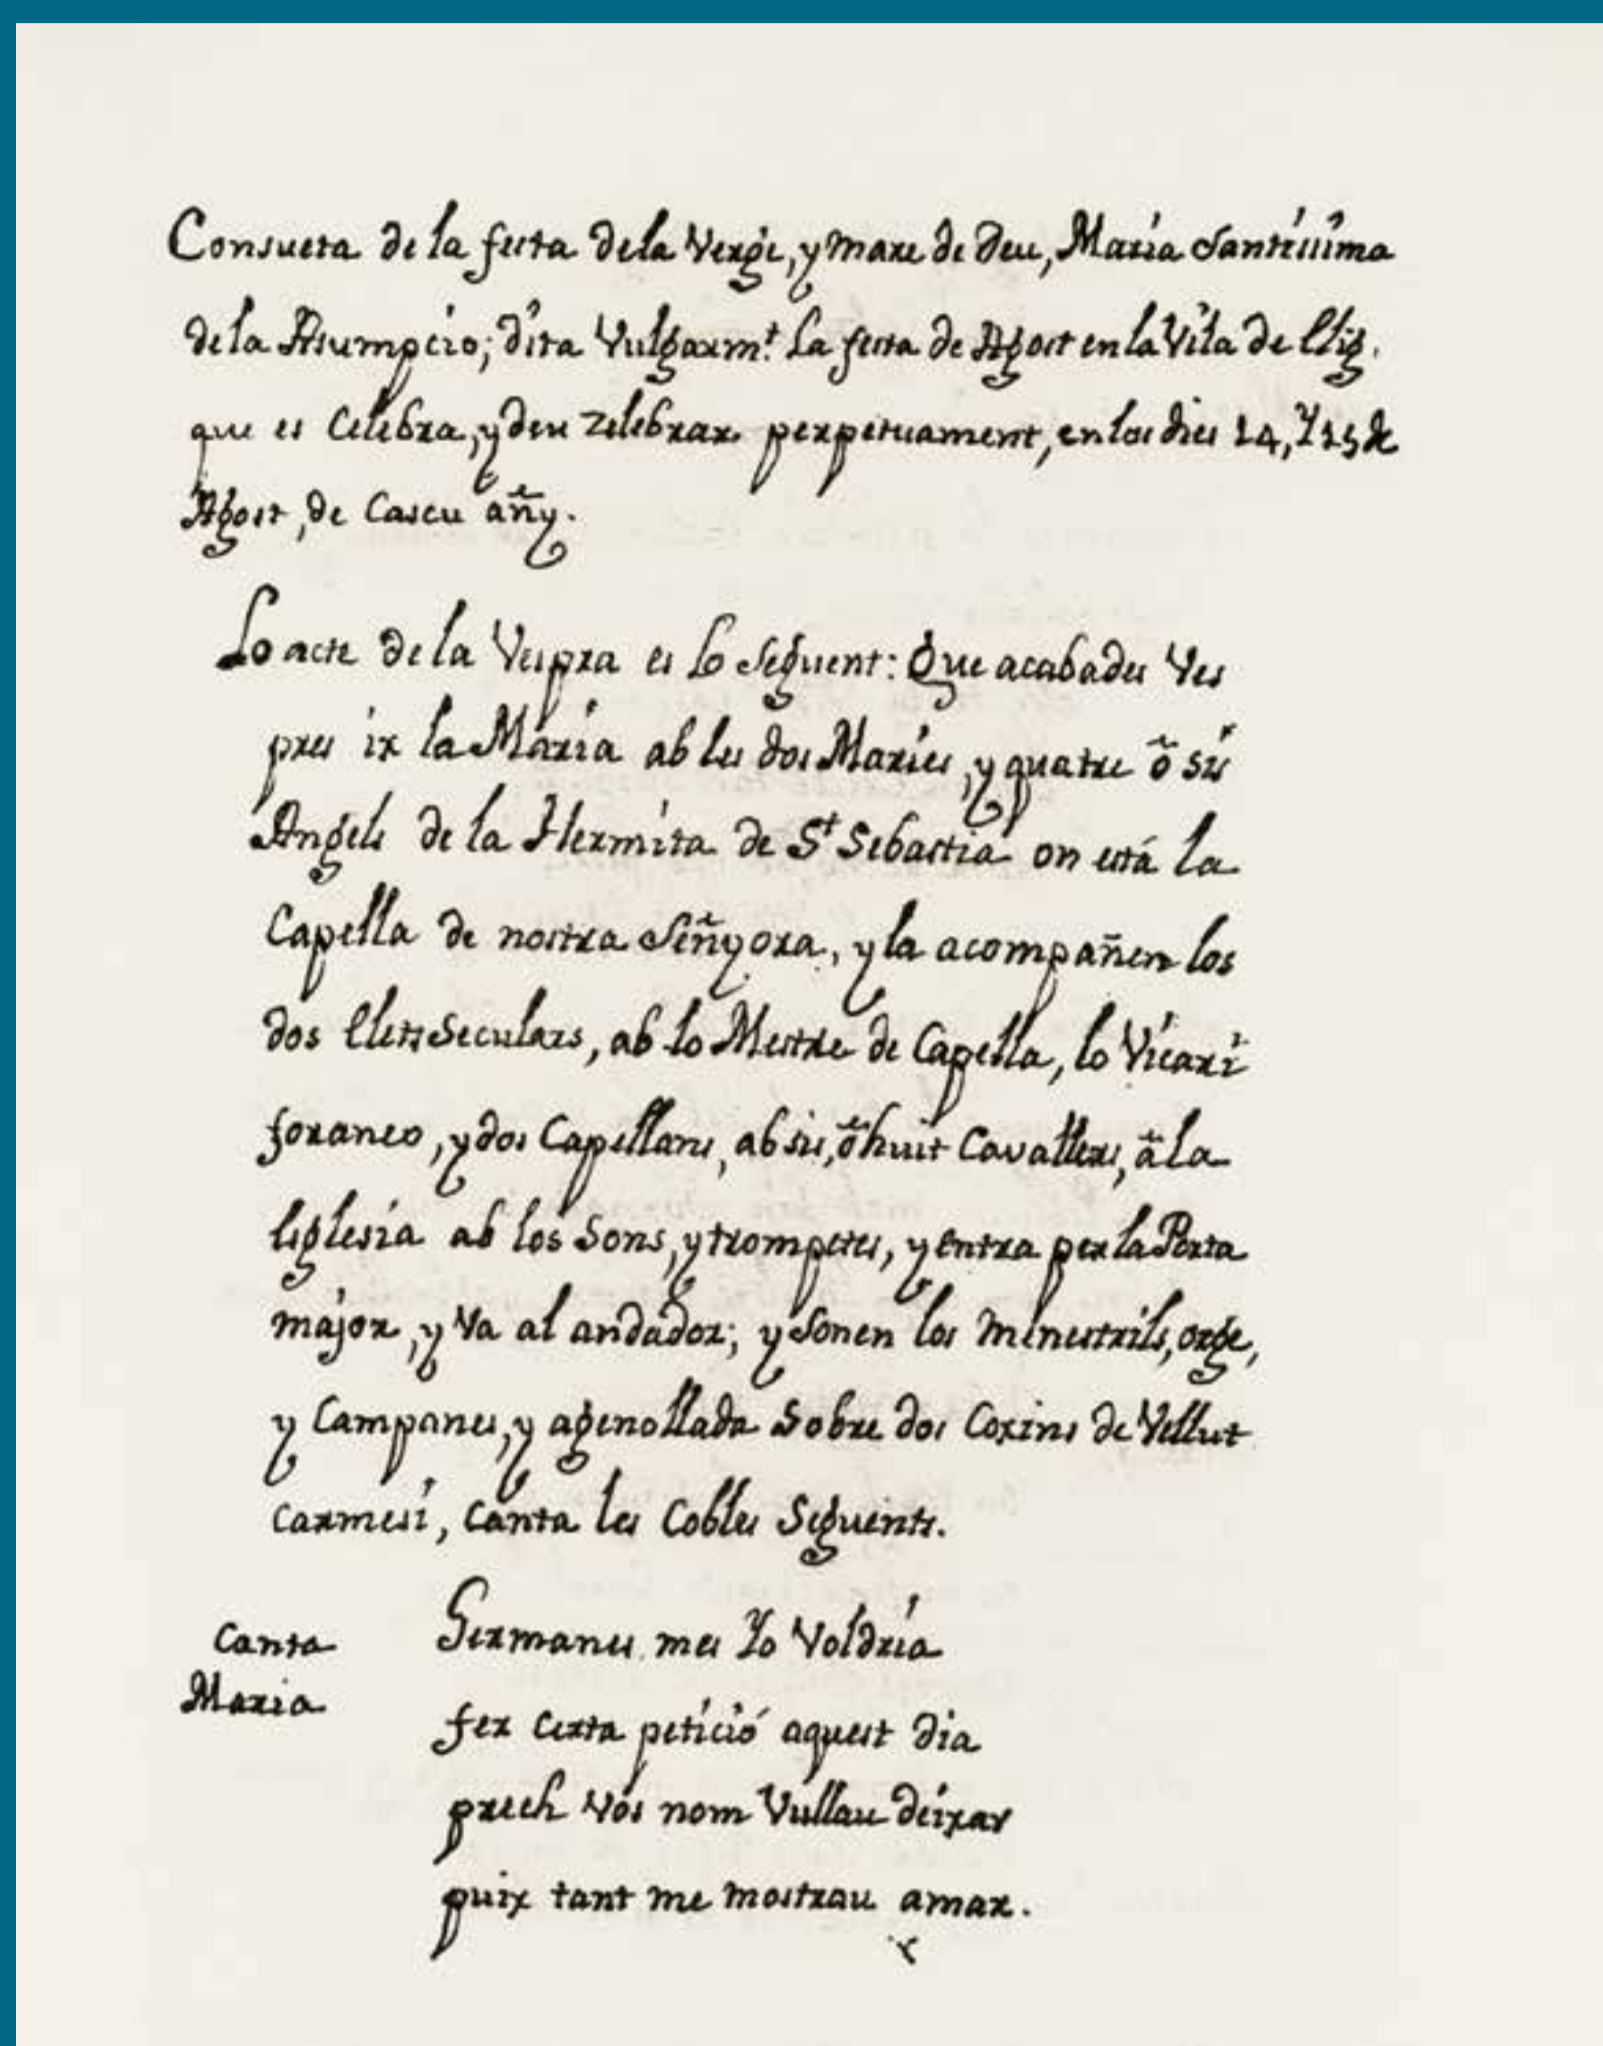 Consueta de la festa dela Verge, y Mare de Deu, María Santíssima
dela Asumpcio; díta Vulgarmt. La festa de Agost en la Vila de Elig.
que es Celebra, y deu zelebrar perpetuament, en los dies 14, Y 15 de
Agost, de Cascu añy.
Lo acte de la Vespra es Lo Seguent: Que acabades Ves
pres ix la María ab les dos Maríes, y quatre ò sis
Angels de la Hermíta de St Sebastia on está la
Capella de nostra Señyora, y la acompañen los
dos Elets Seculars, ab lo Mestre de Capella, lo Vicari
foraneo, y dos Capellans, ab sis, ò huit Cavallers, à la
Iglesia ab los Sons, y trompetes, y entra per la Porta
major, y Va al andador; y Sonen los Menestrils, orge,
y Campanes, y agenollada Sobre dos Coxins de Vellut
carmesí, canta les Cobles Seguents.
Canta
María
Germanes mes Yo Voldría
fer certa petició aquest dia
prech vós nom Vullau deixar
puix tant me mostrau amar.